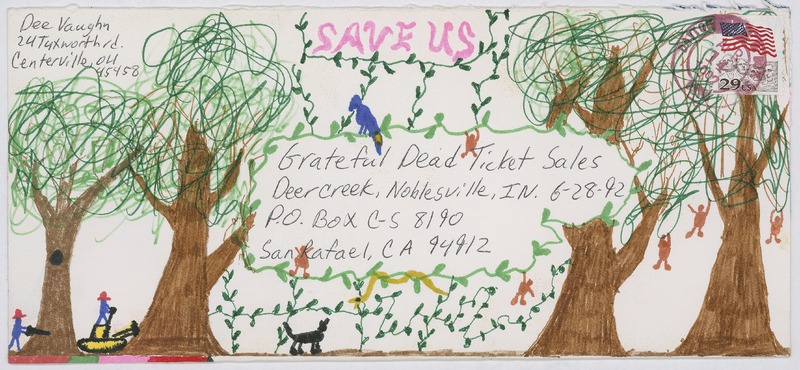 Dee Vaughn
24 Tuxworth rd.
Centerville, OH
45458
SAVE US
29 USA
Grateful Dead Ticket Sales
Deercreek, Noblesville, IN. 6-28-92
P.O. Box C-S 8190
San Rafael, CA 94912